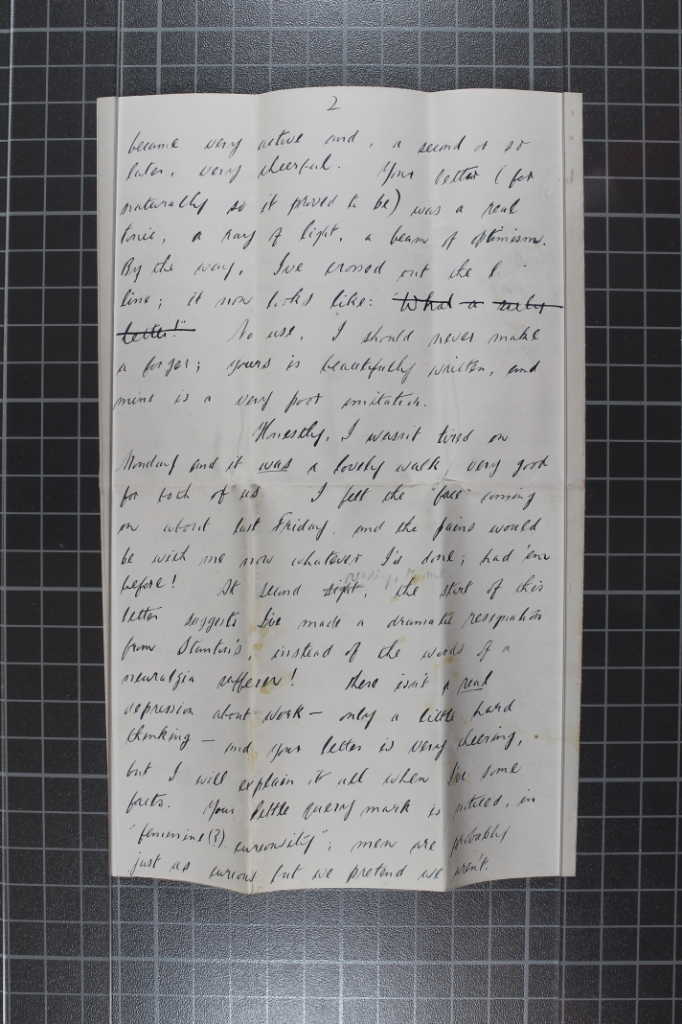 2
became very active and, a second or so
later, very cheerful. Your letter (for
naturally so it proved to be) was a real
tonic, a ray of light, a beam of optimism.
By the way, I've crossed out the
line; it now looks like: "What a
letter!" No use, I should never make
a forger; yours is beautifully written, and
mine is a very poor imitation.
Honestly, I wasn't tired on
Monday and it was a lovely walk, very good
for both of us. I felt the "face" coming
on about last Friday and the pains would
be with me now whatever I'd done; had 'em
before! At second sight, reading, the start of this
letter suggests I've made a dramatic resignation
from Staunton's, instead of the words of a
neuralgia sufferer! There isn't a real
depression about work — only a little hard
thinking — and your letter is very cheering,
but I will explain it all when I've some
facts. Your little query mark is noticed, in
"feminine(?) curiousity"; men are probably
just as curious but we pretend we aren't.